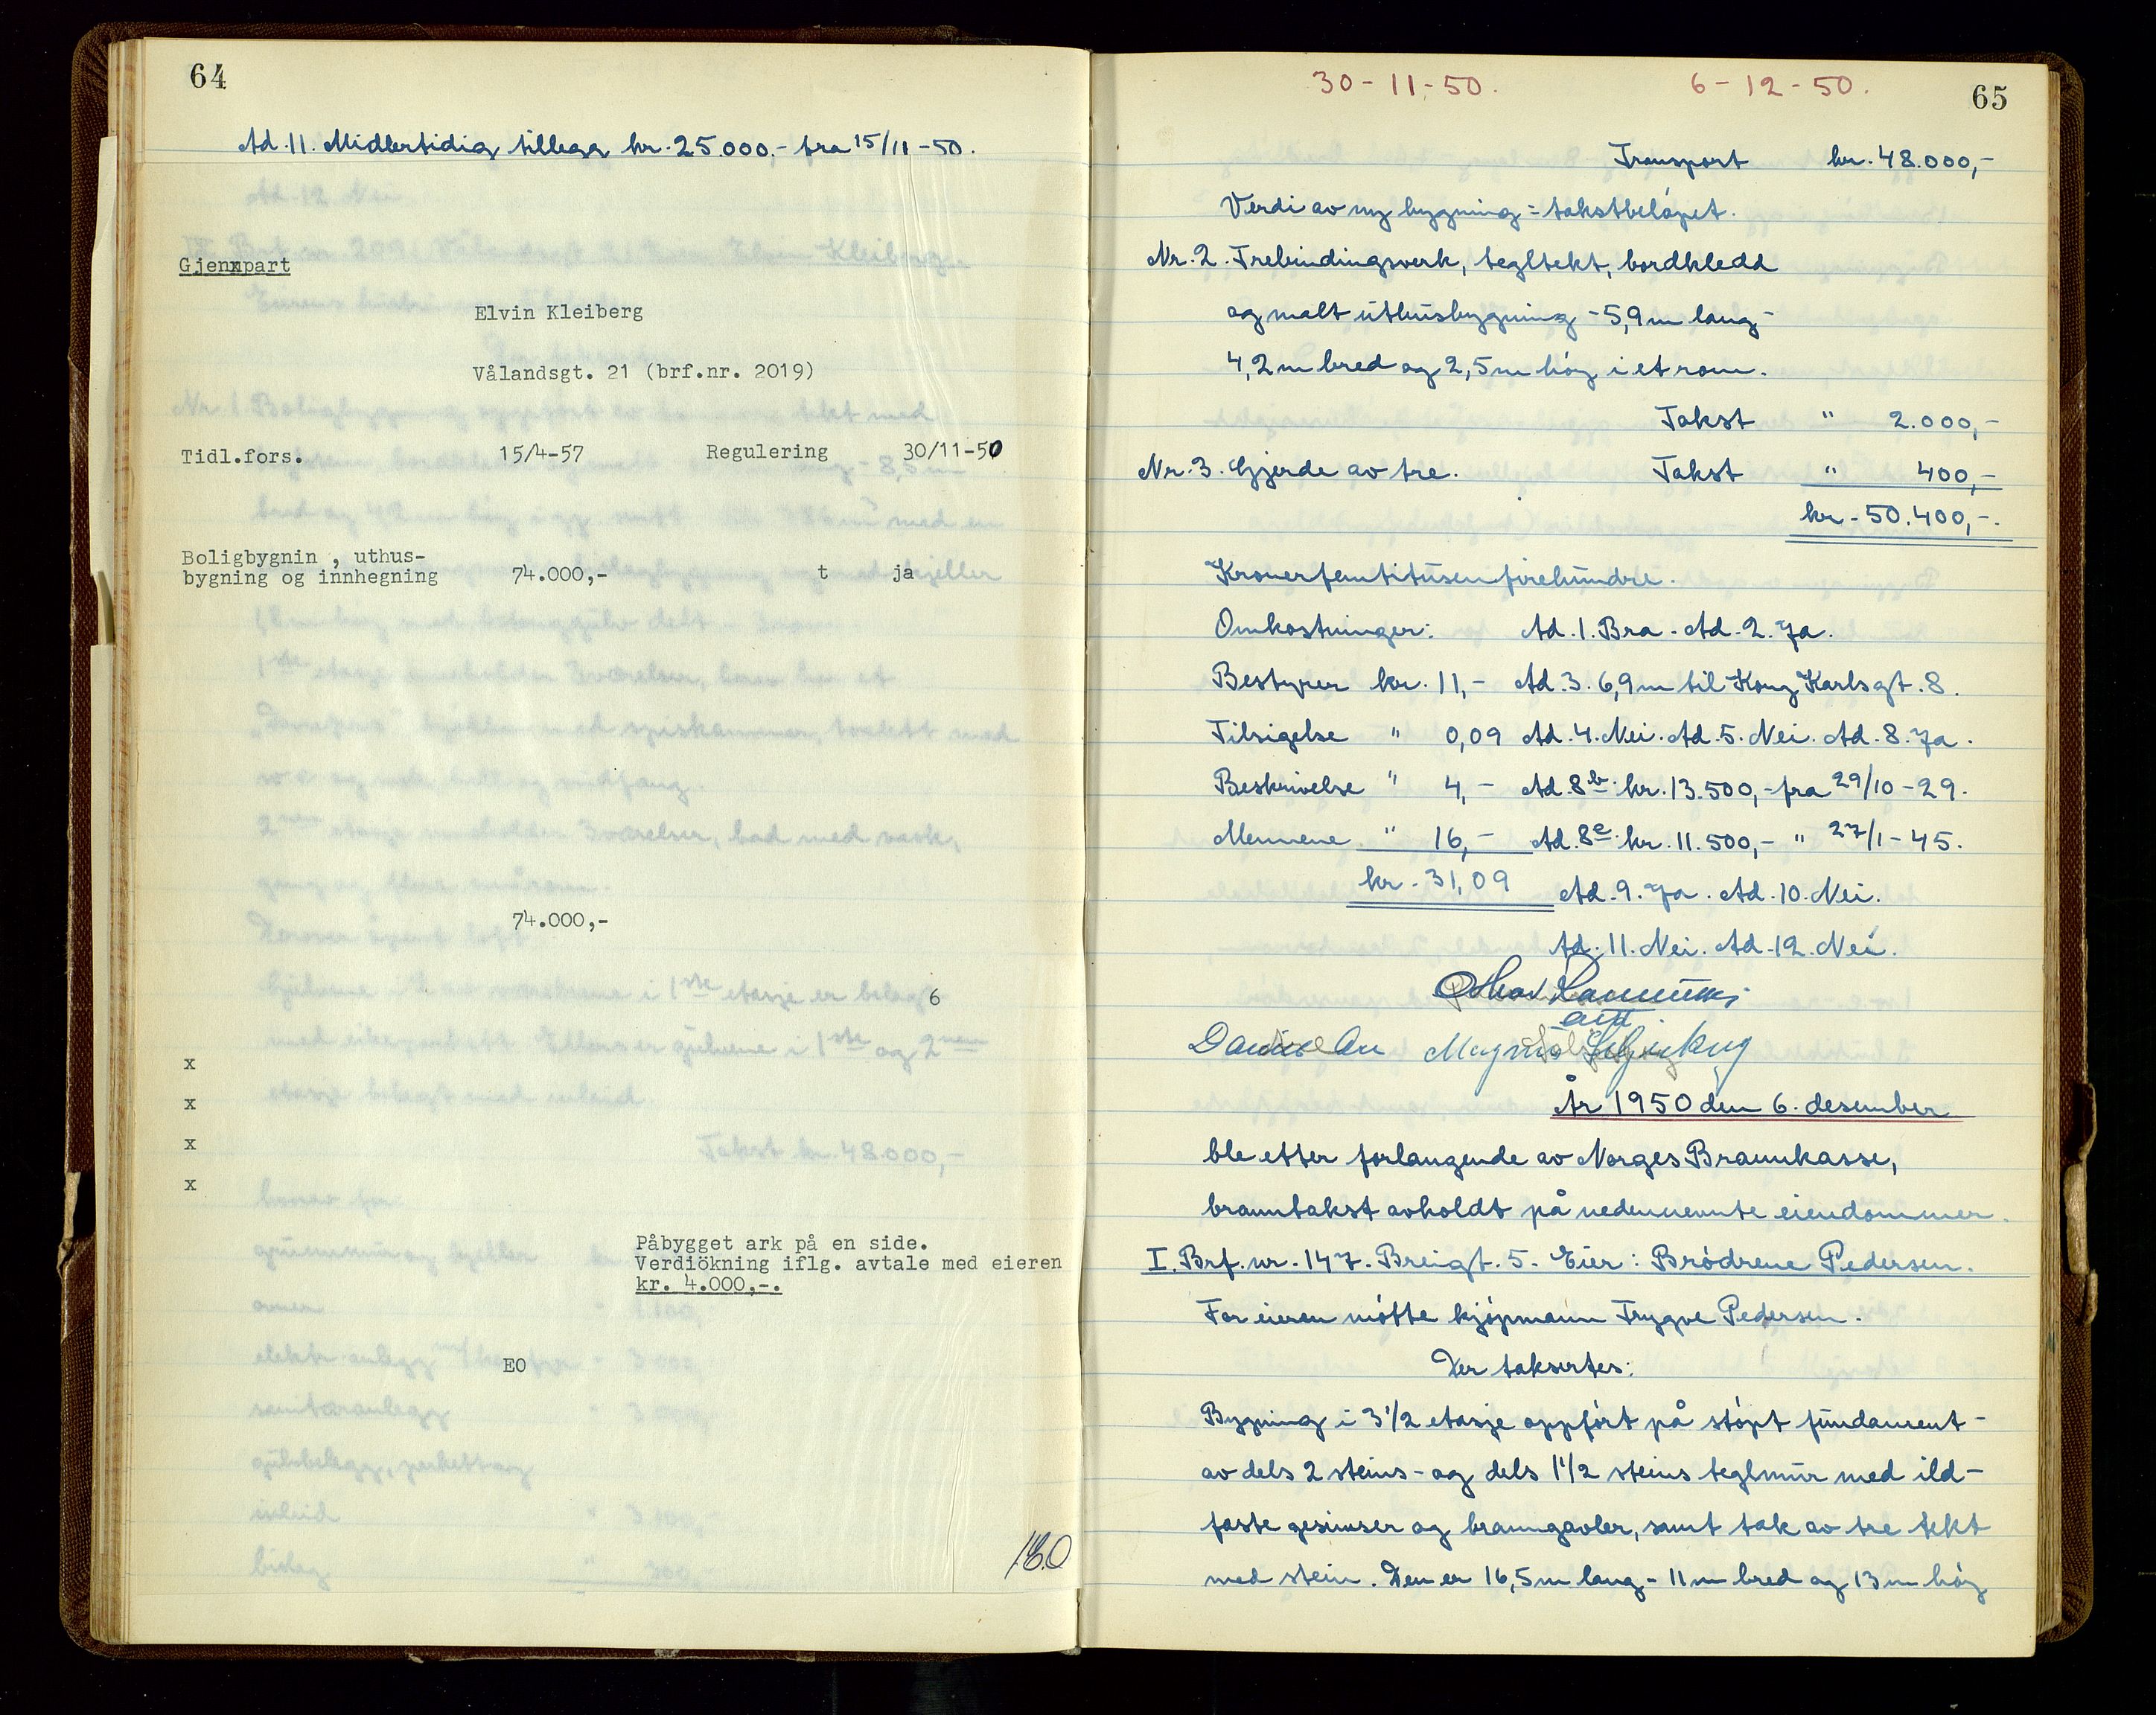 64
Ad. 11. Midlertidig tillegg kr. 25.000,- fra 15/11-50.
Gjenxpart
Elvin Kleiberg
Vålandsgt. 21 (brf.nr. 2019)
Tidl.fors. 15/4-57 Regulering 30/11-50
Boligbygnin , uthus-
bygning og innhegning 74.000,- t ja
74.000,-
6
x
x
x
x
Påbygget ark på en side.
Verdiökning iflg. avtale med eieren
kr. 4.000,-.
EO
30-11-50. 6-12-50.
65
Transport kr. 48.000,-
Verdi av ny bygning = takstbeløpet.
Nr. 2. Trebindingsverk, tegltekt, bordkledd
og malt uthusbygning - 5,9 m lang -
4,2 m bred og 2,5 m høg i et rom.
Takst " 2.000,-
Nr. 3. Gjerde av tre. Takst " 400,-
kr. 50.400,-.
Kronerfemtitusenfirehundre.
Omkostninger: Ad. 1. Bra. Ad. 2. Ja.
Bestyrer kr. 11,- Ad. 3. 6,9 m til Kong Karlsgt. 8.
Tilsigelse " 0,09 Ad. 4. Nei. Ad. 5. Nei. Ad. 8. Ja.
Beskrivelse " 4,- Ad. 8b. kr. 13.500,- fra 29/10-29.
Mennene " 16,- Ad. 8c. kr. 11.500,- " 27/1-45.
kr. 31,09 Ad. 9. Ja. Ad. 10. Nei.
Ad. 11. Nei. Ad. 12. Nei.
År 1950 den 6. desember
ble etter forlangende av Norges Brannkasse,
branntakst avholdt på nedennevnte eiendommer.
I. Brf. nr. 147. Breigt. 5. Eier: Brødrene Pedersen.
For eieren møtte kjøpmann Trygve Pedersen.
Der taksertes:
Bygning i 3 1/2 etasje oppført på støpt fundament -
av dels 2 steins - og dels 1 1/2 steins teglmur med ild-
faste gesimser og branngavler, samt tak av tre tekt
med stein. Den er 16,5 m lang - 11 m bred og 13 m høg